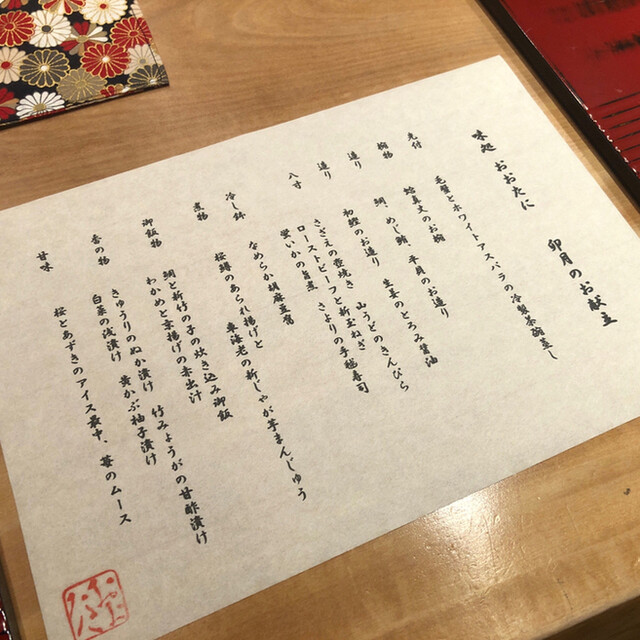 味処 おおたに 卯月のお献立
先付 毛蟹とホワイトアスパラの冷製茶碗蒸し
椀物 蛤真丈のお椀
造り 鯛、めじ鮪、平貝のお造り 生姜のとろみ醤油
造り 初鰹のお造り
八寸 さざえの壺焼き 山うどのきんぴら
ローストビーフと新玉ねぎ さよりの手毬寿司
蛍いかの旨煮
冷し鉢 なめらか胡麻豆腐
煮物 桜鱒のあられ揚げと
桜海老の新じゃが芋まんじゅう
御飯物 鯛と新竹の子の炊き込み御飯
わかめと京揚げの赤出汁
香の物 きゅうりのぬか漬け 竹みょうがの甘酢漬け
白菜の浅漬け 黄かぶ柚子漬け
甘味 桜とあずきのアイス最中、苺のムース